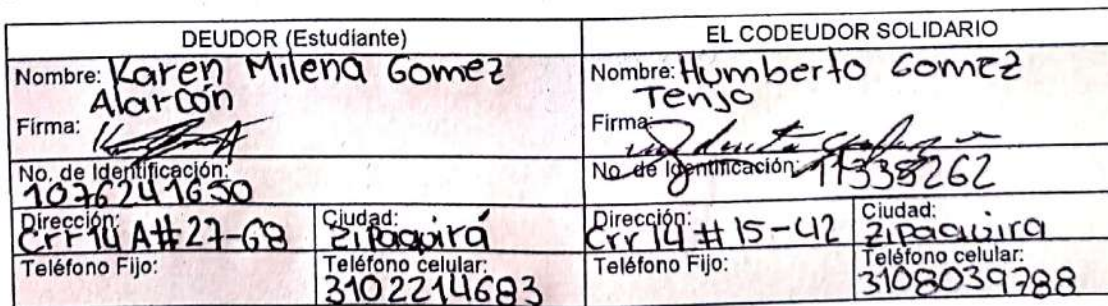 DEUDOR (Estudiante)
EL CODEUDOR SOLIDARIO
Nombre: Karen Milena Gomez
Alarcón
Nombre: Humberto Gomez
Tenjo
Firma:
Firma:
No. de Identificación:
1076241650
No. de Identificación: 11338262
Dirección:
Crr 14 A # 27-68
Ciudad:
Zipaquirá
Dirección:
Crr 14 # 15-42
Ciudad:
Zipaquira
Teléfono Fijo:
Teléfono celular:
3102214683
Teléfono Fijo:
Teléfono celular:
3108039788